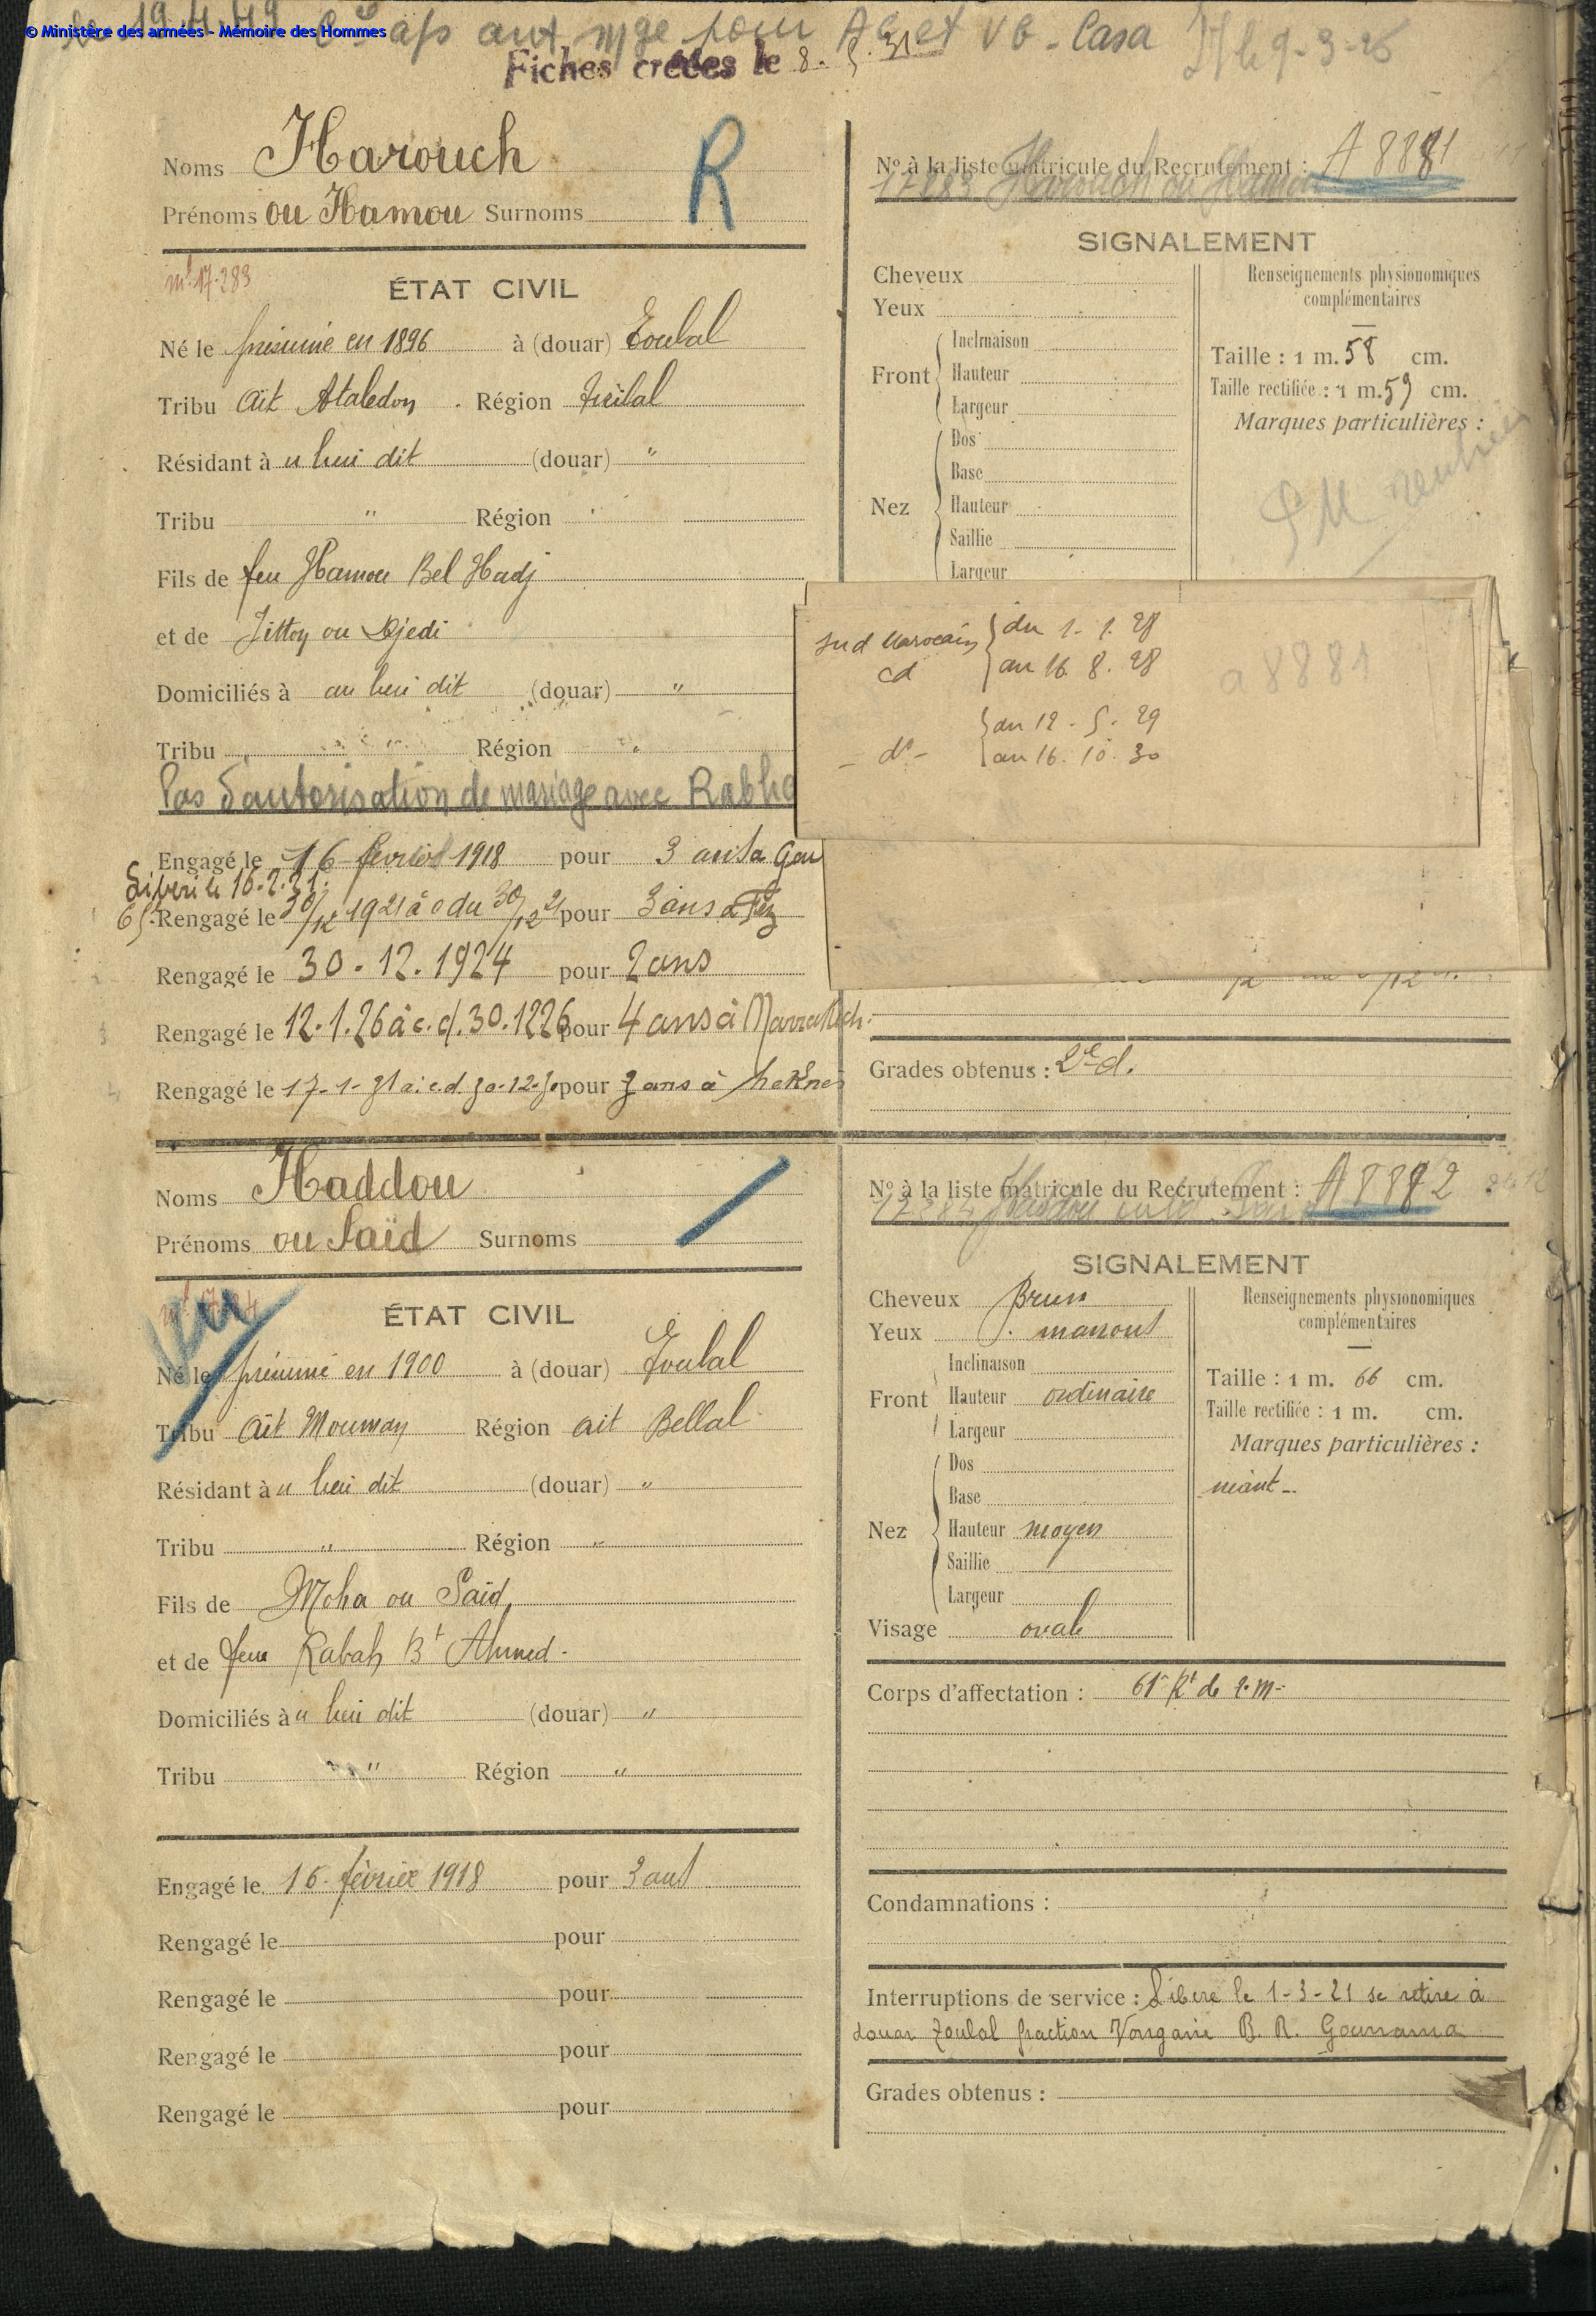 © Ministère des armées - Mémoire des Hommes
le 19.4.49 aps aut mge pour et VB - Casa
9-3-26
Fiches créées le 8. 5. 31
Noms Harouch
Prénoms ou Hamou Surnoms
R
mle 17.283
ÉTAT CIVIL
Né le présumé en 1896 à (douar) Toulal
Tribu Aït Région
Résidant à u lieu dit (douar) "
Tribu " Région "
Fils de feu Hamou Bel Hadj
et de ou Djedi
Domiciliés à au lieu dit (douar) "
Tribu " Région "
Pas d'autorisation de mariage avec Rabha
Engagé le 16 février 1918 pour 3 ans à Gou
Libéré le 16.2.21.
Rengagé le 30/12 1921 à c du 30/12 21 pour 3 ans à Fez
Rengagé le 30.12.1924 pour 2 ans
Rengagé le 12.1.26 à c.d. 30.12 26 pour 4 ans à Marrakech.
Rengagé le 17-1-31 à c.d. 30-12-30 pour 3 ans à Meknes
N° à la liste matricule du Recrutement : A 8881
17283 Harouch ou Hamou
SIGNALEMENT
Cheveux
Yeux
Front
Inclinaison
Hauteur
Largeur
Nez
Dos
Base
Hauteur
Saillie
Largeur
Renseignements physionomiques
complémentaires
Taille : 1 m. 58 cm.
Taille rectifiée : 1 m. 59 cm.
Marques particulières :
Sud Marocain du 1. 1. 28
cd au 16. 8. 28
a 8881
du 12 - 5. 29
- d° - au 16. 10. 30
Grades obtenus : 2e cl.
Noms Haddou
Prénoms ou Saïd Surnoms
ÉTAT CIVIL
Né le présumé en 1900 à (douar) Toulal
Tribu Aït Moumay Région ait Bellal
Résidant à u lieu dit (douar) "
Tribu " Région "
Fils de Moha ou Saïd
et de feue Rabah Bt Ahmed.
Domiciliés à u lieu dit (douar) "
Tribu " Région "
Engagé le 16 février 1918 pour 3 ans
Rengagé le pour
Rengagé le pour
Rengagé le pour
Rengagé le pour
N° à la liste matricule du Recrutement : A 8882
17284 Haddou
SIGNALEMENT
Cheveux Brun
Yeux marrons
Front
Inclinaison
Hauteur ordinaire
Largeur
Nez
Dos
Base
Hauteur moyen
Saillie
Largeur
Visage ovale
Renseignements physionomiques
complémentaires
Taille : 1 m. 66 cm.
Taille rectifiée : 1 m. cm.
Marques particulières :
néant -
Corps d'affectation : 61e Rt de T.M.
Condamnations :
Interruptions de service : Libéré le 1-3-21 se retire à
douar Toulal fraction B. R. Gourrama
Grades obtenus :